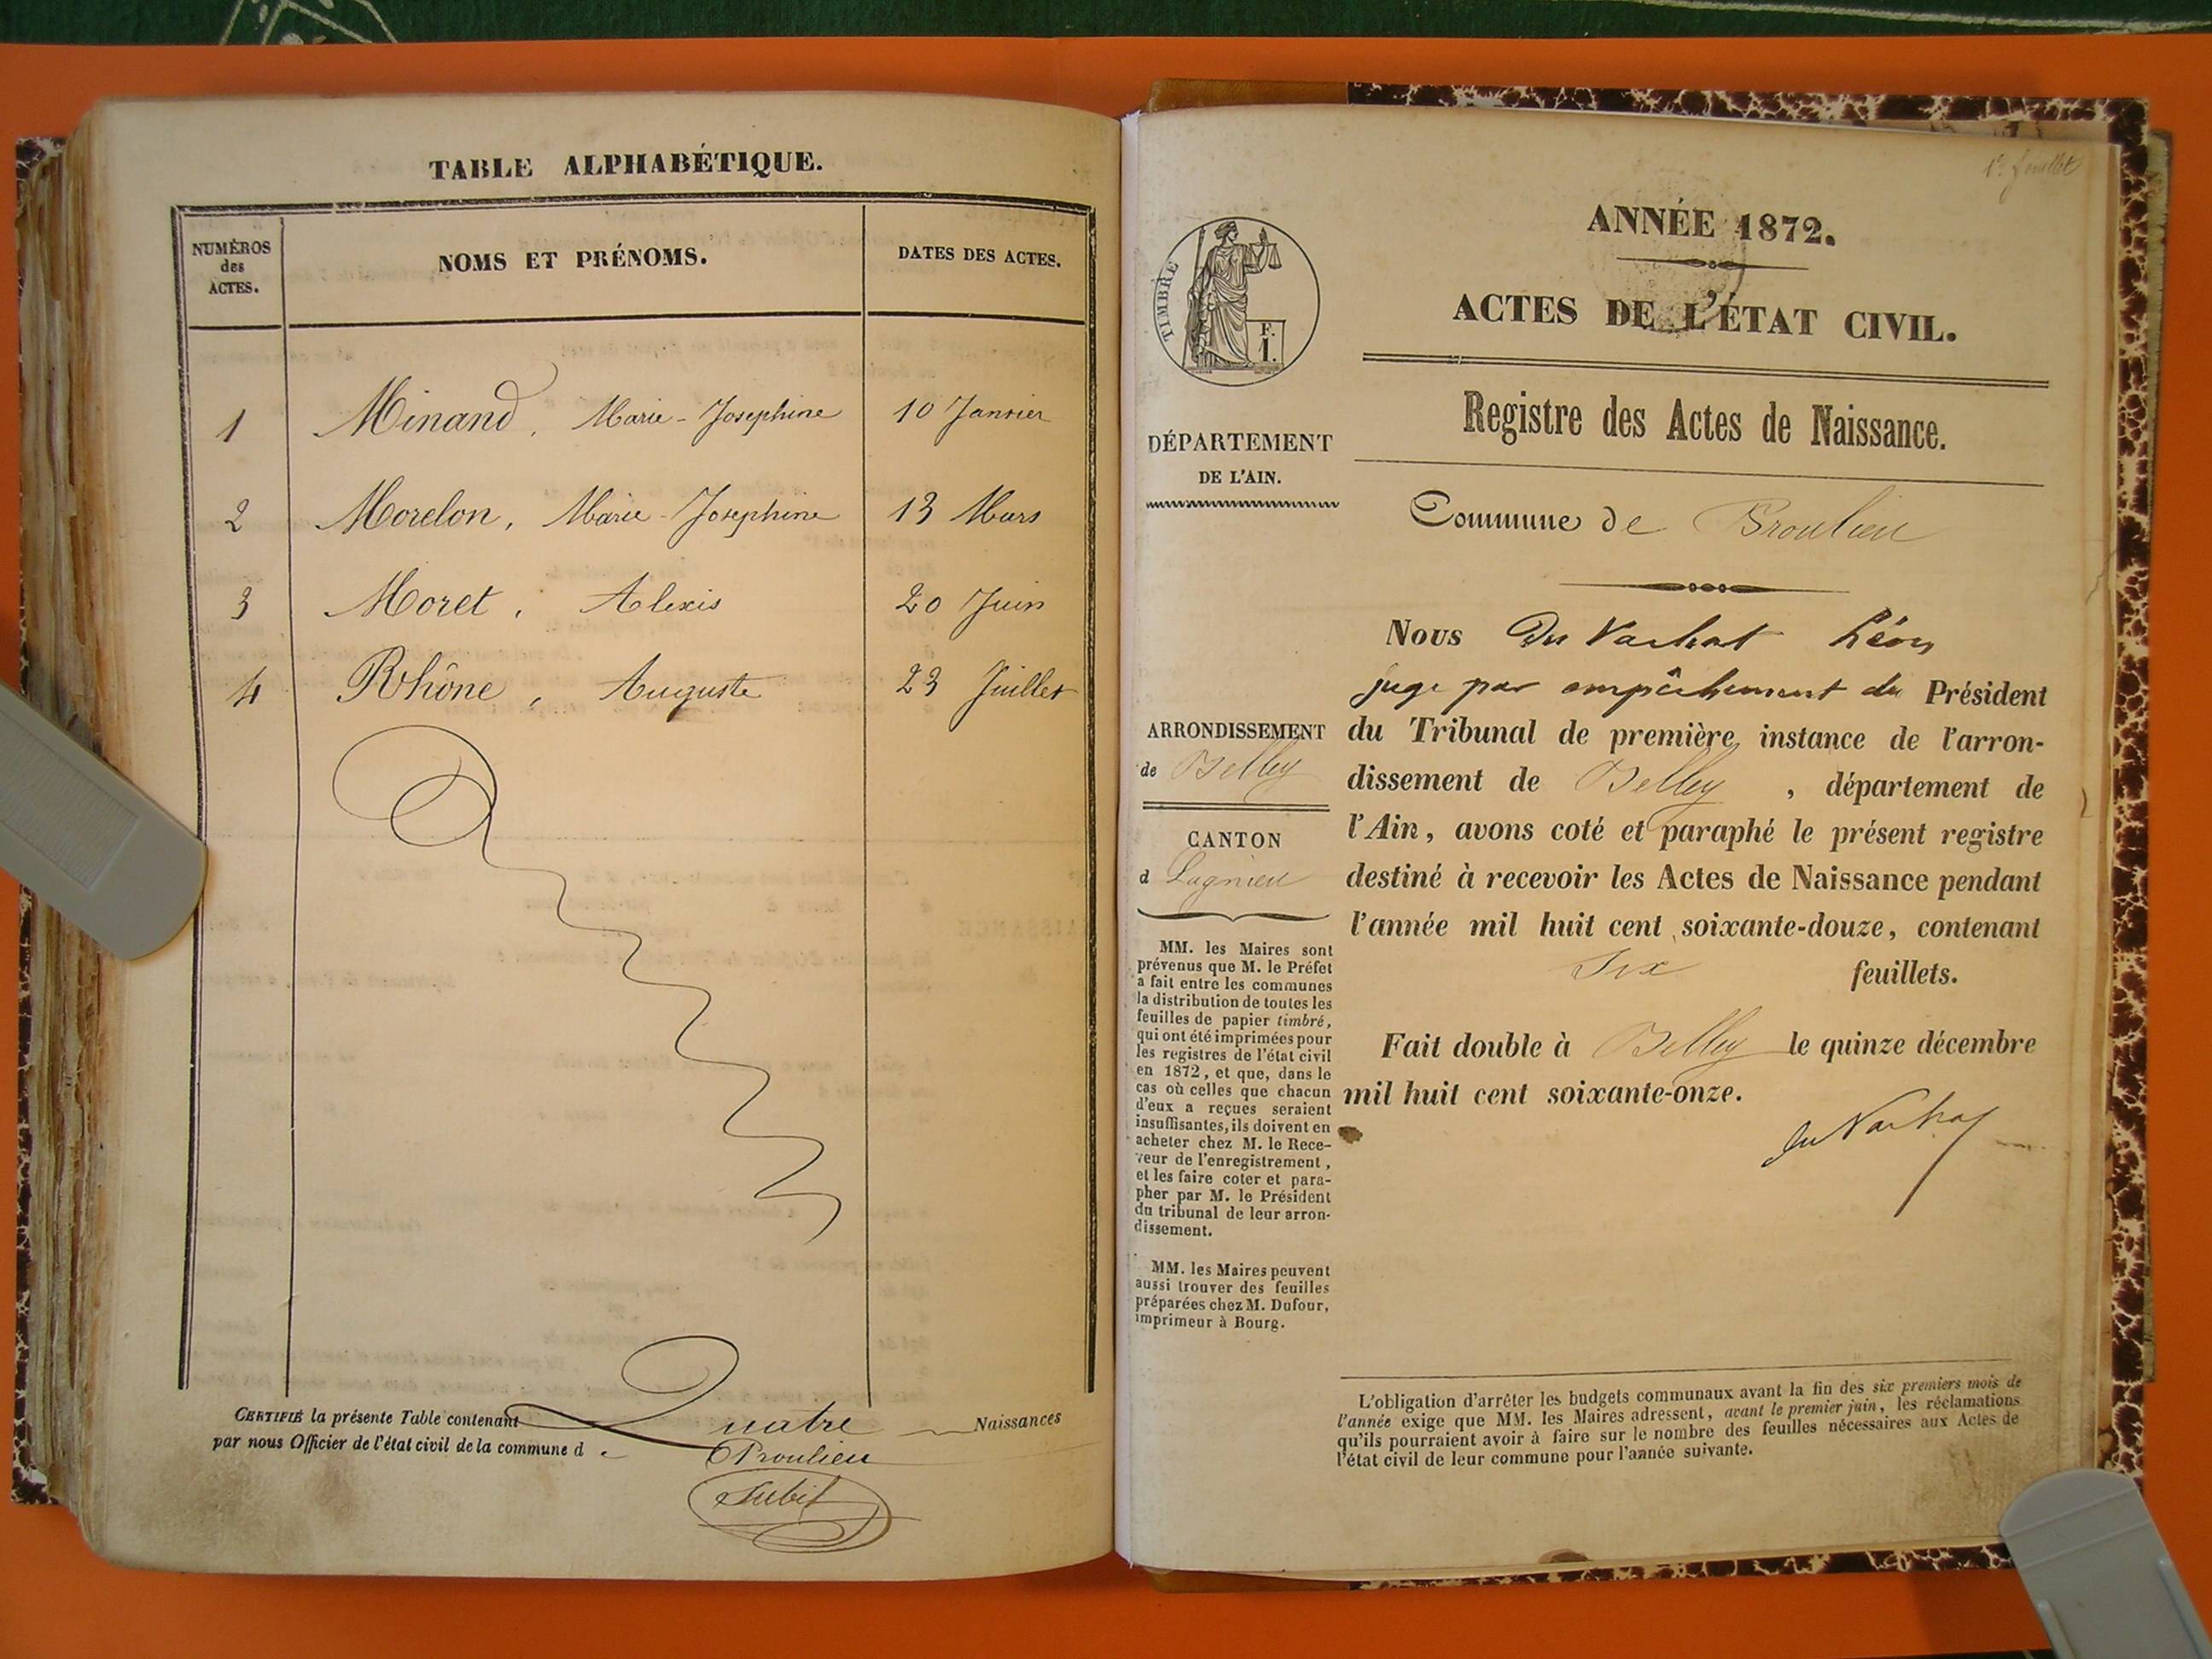 TABLE ALPHABÉTIQUE.
NUMÉROS des ACTES. NOMS ET PRÉNOMS. DATES DES ACTES.
1 Minand, Marie-Josephine 10 Janvier
2 Morelon, Marie-Josephine 13 Mars
3 Moret, Alexis 20 Juin
4 Rhône, Auguste 23 Juillet
CERTIFIÉ la présente Table contenant Quatre Naissances
par nous Officier de l'état civil de la commune de Proulieu
Subit
1er feuillet
ANNÉE 1872.
ACTES DE L'ÉTAT CIVIL.
Registre des Actes de Naissance.
Commune de Proulieu
TIMBRE
F.
I.
DÉPARTEMENT
DE L'AIN.
ARRONDISSEMENT
de Belley
CANTON
d Lagnieu
MM. les Maires sont
prévenus que M. le Préfet
a fait entre les communes
la distribution de toutes les
feuilles de papier timbré,
qui ont été imprimées pour
les registres de l'état civil
en 1872, et que, dans le
cas où celles que chacun
d'eux a reçues seraient
insuffisantes, ils doivent en
acheter chez M. le Rece-
veur de l'enregistrement,
et les faire coter et para-
pher par M. le Président
du tribunal de leur arron-
dissement.
MM. les Maires peuvent
aussi trouver des feuilles
préparées chez M. Dufour,
imprimeur à Bourg.
Nous Du Vachat Léon
juge par empêchement du Président
du Tribunal de première instance de l'arron-
dissement de Belley, département de
l'Ain, avons coté et paraphé le présent registre
destiné à recevoir les Actes de Naissance pendant
l'année mil huit cent soixante-douze, contenant
Six feuillets.
Fait double à Belley le quinze décembre
mil huit cent soixante-onze.
du Vachat
L'obligation d'arrêter les budgets communaux avant la fin des six premiers mois de
l'année exige que MM. les Maires adressent, avant le premier juin, les réclamations
qu'ils pourraient avoir à faire sur le nombre des feuilles nécessaires aux Actes de
l'état civil de leur commune pour l'année suivante.